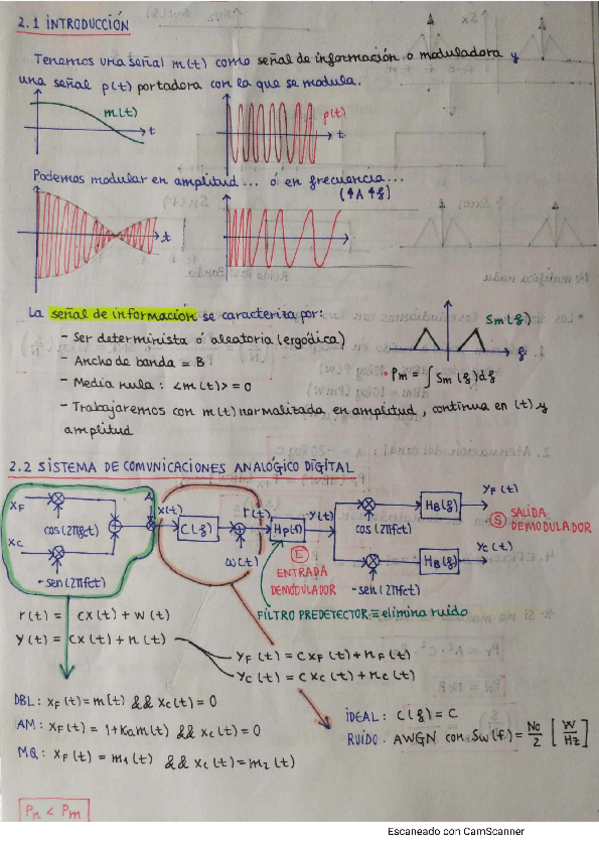 2.1 INTRODUCCIÓN
Tenemos una señal m(t) como señal de información o moduladora y
una señal p(t) portadora con la que se modula.
m(t)
t
p(t)
t
Podemos modular en amplitud... ó en frecuencia...
(↑A ↑f)
t
La señal de información se caracteriza por:
- Ser determinista ó aleatoria (ergódica)
- Ancho de banda = B
- Media nula: <m(t)> = 0
- Trabajaremos con m(t) normalizada en amplitud, contínua en (t) y
amplitud
Sm(f)
f
Pm = ∫ Sm(f)df
2.2 SISTEMA DE COMUNICACIONES ANALÓGICO DIGITAL
XF
cos(2πfct)
XC
-sen(2πfct)
A
X(t)
C(f)
r(t)
w(t)
Hp(f)
E
ENTRADA
DEMODULADOR
Y(t)
cos(2πfct)
-sen(2πfct)
HB(f)
HB(f)
YF(t)
YC(t)
S SALIDA
DEMODULADOR
FILTRO PREDETECTOR ≡ elimina ruido
r(t) = cx(t) + w(t)
Y(t) = cx(t) + n(t)
YF(t) = CXF(t) + nF(t)
YC(t) = CXC(t) + nC(t)
DBL: XF(t) = m(t) && XC(t) = 0
AM: XF(t) = 1+Kam(t) && XC(t) = 0
MQ: XF(t) = m1(t) && XC(t) = m2(t)
IDEAL: C(f) = C
RUIDO. AWGN con Sw(f) = No/2 [W/Hz]
Pn < Pm
Escaneado con CamScanner